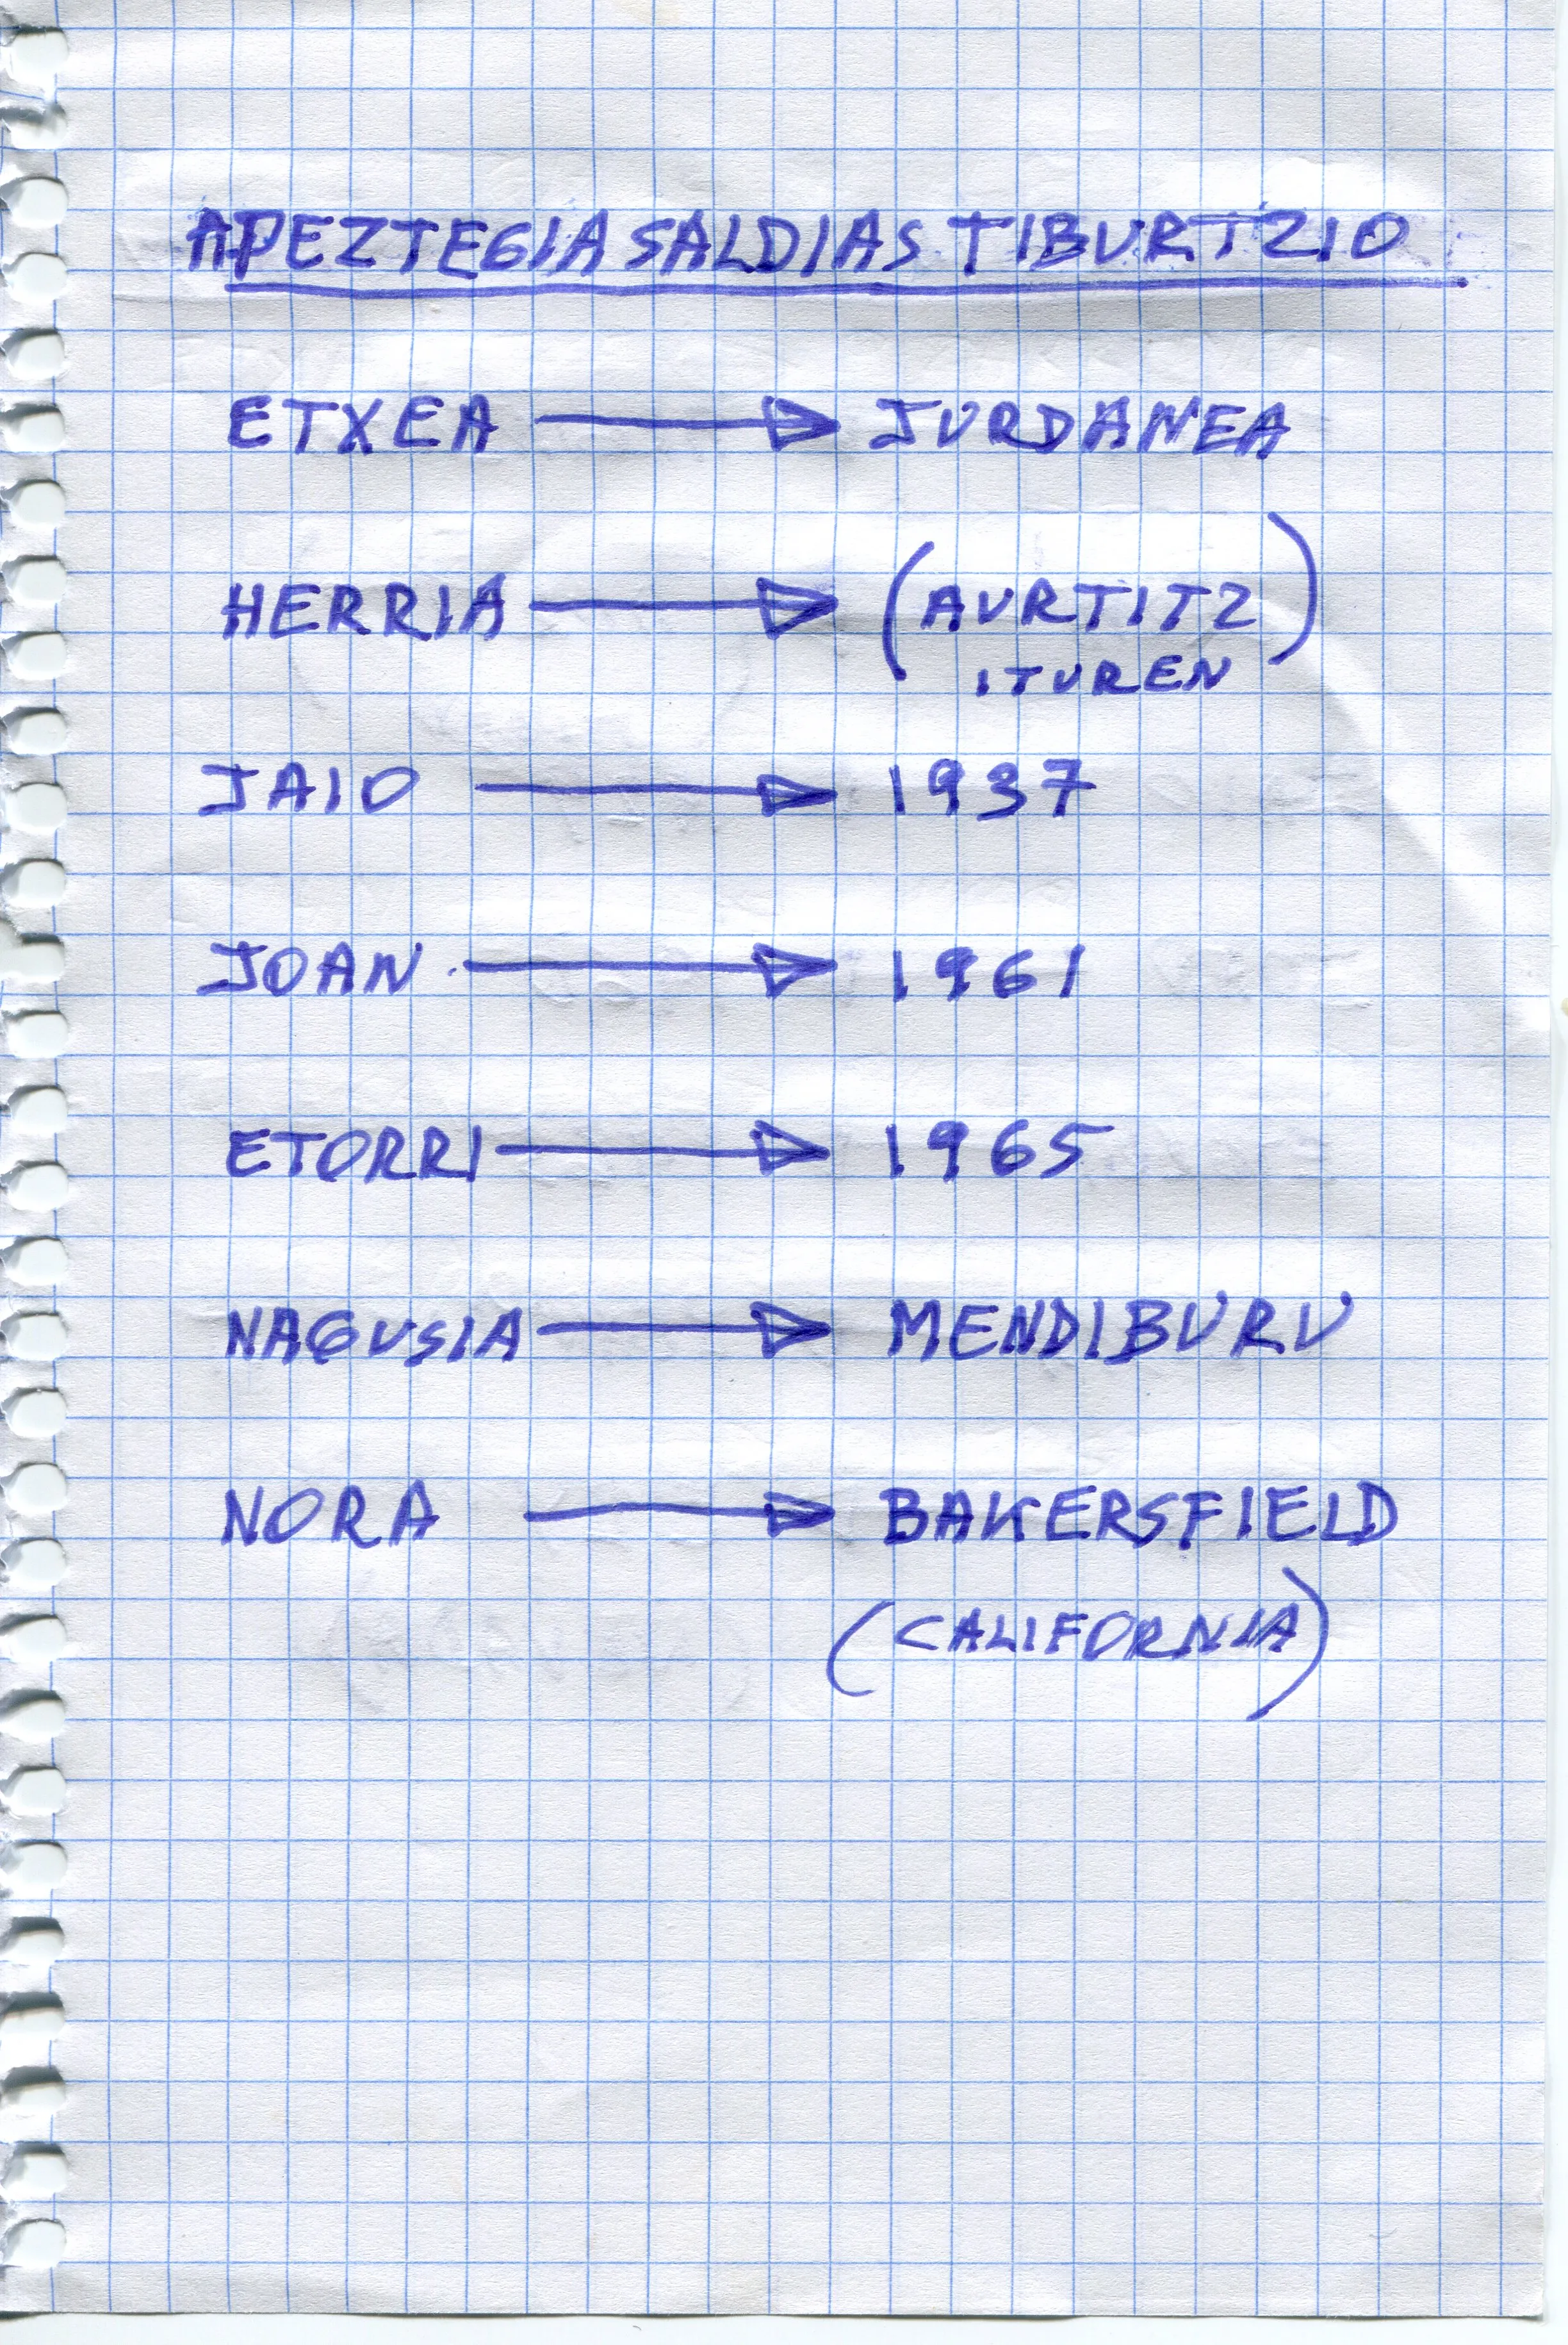 APEZTEGIA SALDIAS TIBURTZIO
ETXEA → JURDANEA
HERRIA → (AURTITZ
ITUREN)
JAIO → 1937
JOAN → 1961
ETORRI → 1965
NAGUSIA → MENDIBURU
NORA → BAKERSFIELD
(CALIFORNIA)